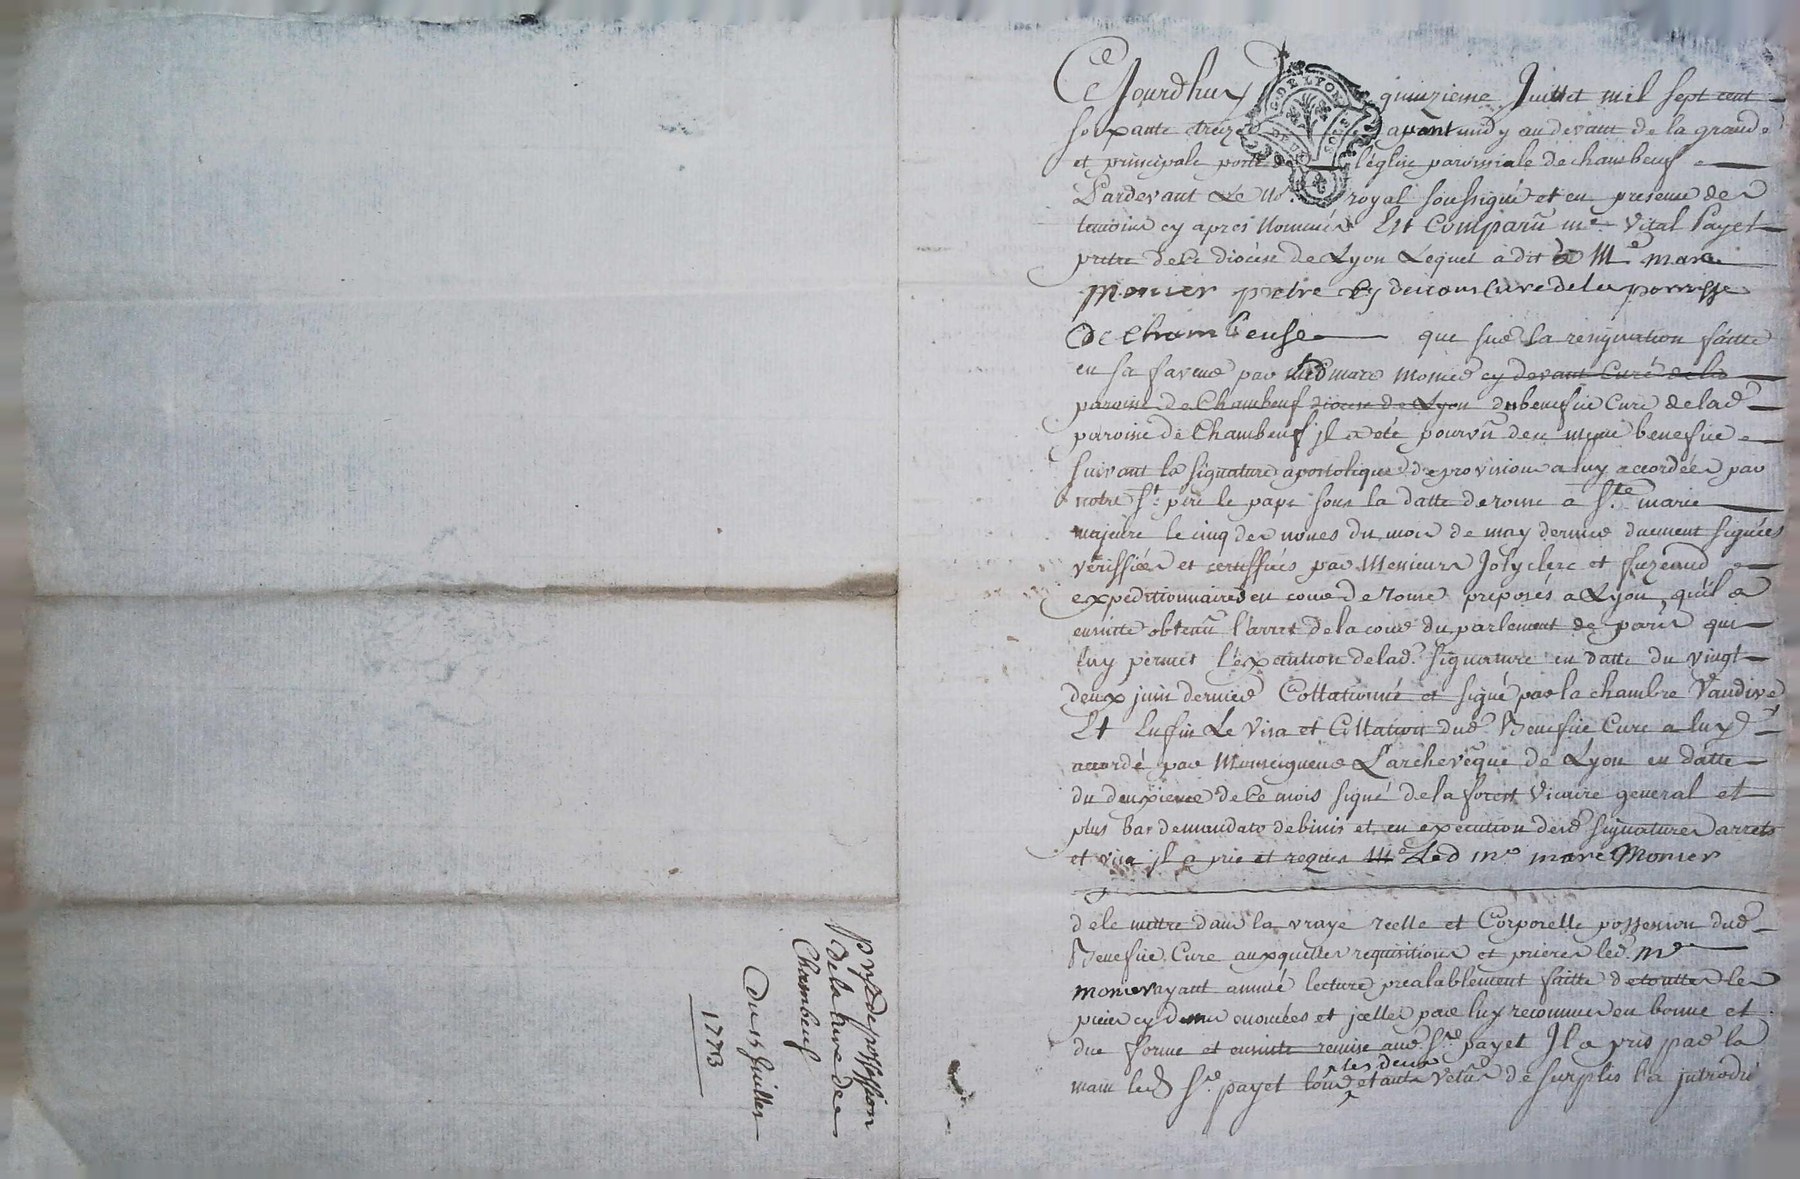 prise de possession
de la Cure de
Chambeuf
Du 15 Juillet
1773
Ce Jourdhuy quinzieme Juillet mil sept cent
soixante treize avant midy au devant de la grande
et principale porte de l'église paroissiale de chambeuf
Pardevant Le No.re royal soussigné et en presence des
temoins cy apres nommés Est Comparu me Vital Payet
pretre de ce diocese de Lyon Lequel a dit a Me marc
monier pretre cy devant Curé de la parroisse
de Chambeuf que sur la resignation faitte
en sa faveur par led marc monier cy devant Curé de la
paroisse de Chambeuf diocese de Lyon du benefice Cure de lad
paroisse de Chambeuf il a eté pourvu de ce meme benefice
suivant la signature apostolique de provision a luy accordée par
notre St. pere le pape sous la datte de rome a Ste marie
majeure le cinq des nones du mois de may dernier duement signées
veriffiées et certiffiées par Messieurs Jolyclerc et fuzeaud
expeditionnaires en cour de rome preposés a Lyon, qu'il a
ensuitte obtenu l'arret de la cour du parlement de paris qui
luy permet l'execution de lad. signature en datte du vingt
deux juin dernier Collationné et signé par la chambre Vandive
Et Enfin Le Visa et Collation dud. Benefice Cure a luy
accordé par Monseigneur L'archevêque de Lyon en datte
du deuxieme de Ce mois signé de la forest Vicaire general et
plus Bas de mandato debinis et en execution desd signatures arrets
et visa il a prié et requis Me Led me marc Monier
de le mettre dans la vraye reelle et Corporelle possession dud
Benefice Cure auxquelles requisitions et prieres led. Me
monier ayant lecture prealablement faitte de toutes les
pieces cy dessus enoncées et icelles par luy reconnues en bonne et
due forme et ensuitte remise aud. Sr. payet Il a pris par la
main led Sr payet tous les deux etants vetus de surplis l'a introduit